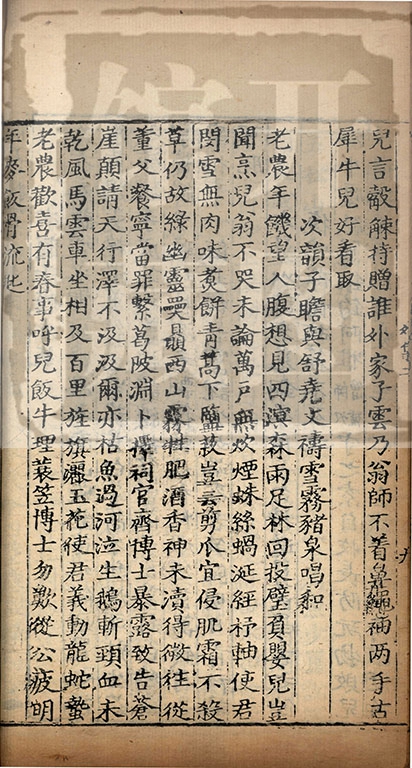 兒言觳觫持贈誰外家子雲乃翁師不着鼻繩袖两手古
犀牛兒好看取
次韻子瞻與舒堯文禱雪霧豬泉唱和
老農年饑望人腹想見四溟森雨足林回投璧負嬰兒豈
聞烹兒翁不哭未論萬戶無炊煙蛛絲蝸涎經杼軸使君
閔雪無肉味煑餅青蒿下鹽菽豈云剪爪宜侵肌霜不殺
草仍故綠幽靈贔屓西山霧牲肥酒香神未瀆得微往從
董父餐寧當罪繫葛陂淵卜擇祠官齊博士暴露致告蒼
崖顛請天行澤不汲汲爾亦枯魚過河泣生鵝斬頸血未
乾風馬雲車坐相及百里旌旗灑玉花使君義動龍蛇蟄
老農歡喜有春事呼兒飯牛理蓑笠博士勿歎從公疲明
年麥飯滑流匕